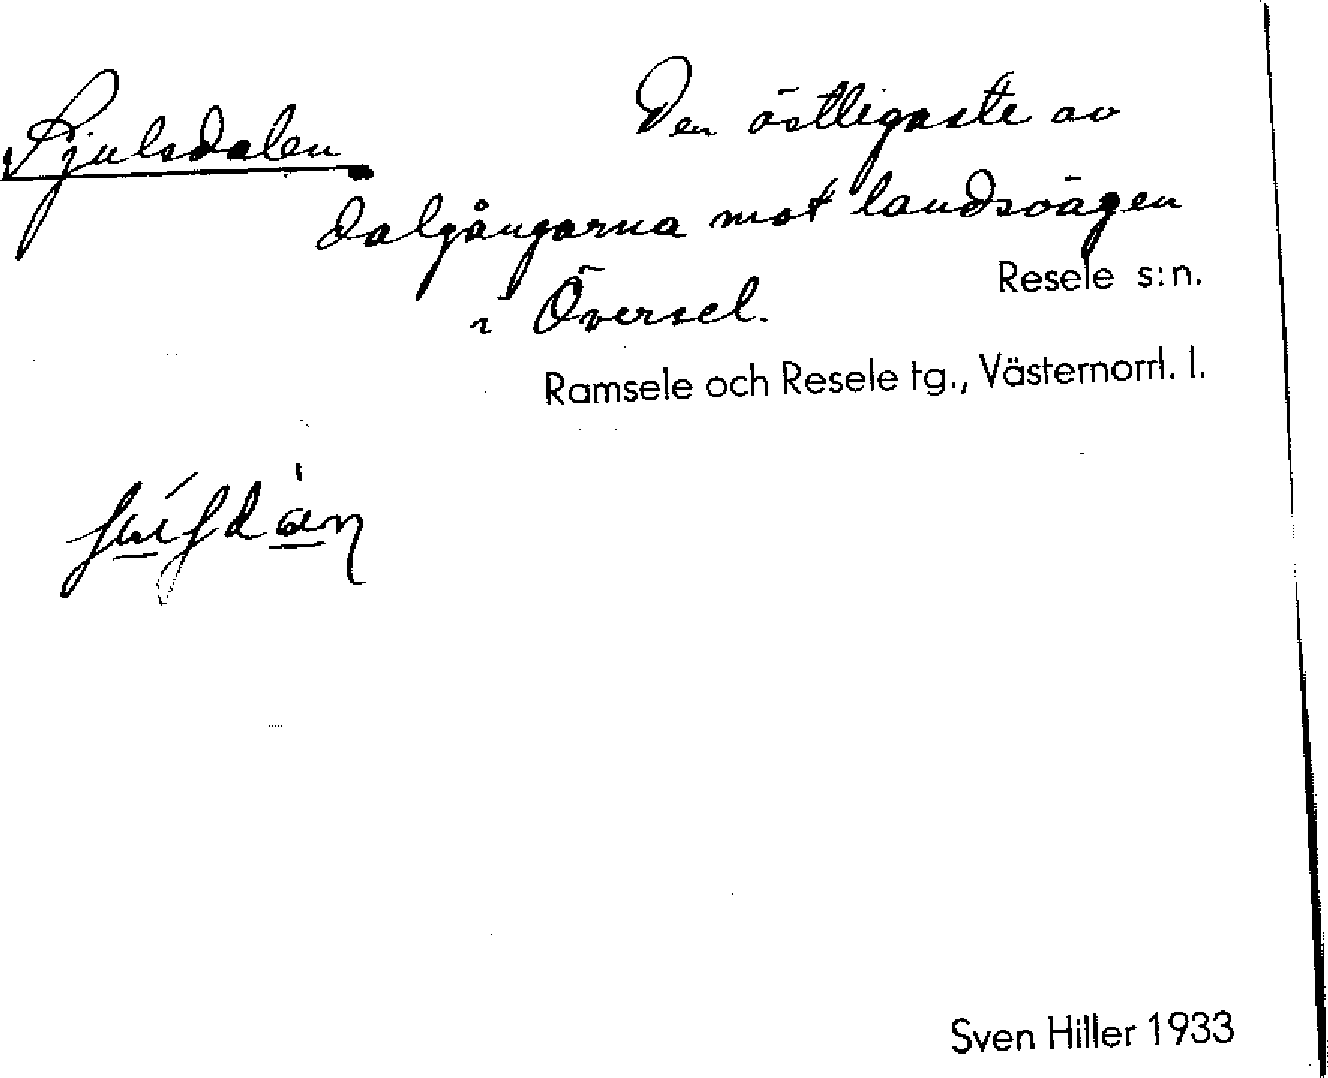 Sjulsdalen
Den östligaste av
dalgångarna mot landsvägen
i Översel.
Resele s:n.
Ramsele och Resele tg., Västernorrl. l.
Sven Hiller 1933